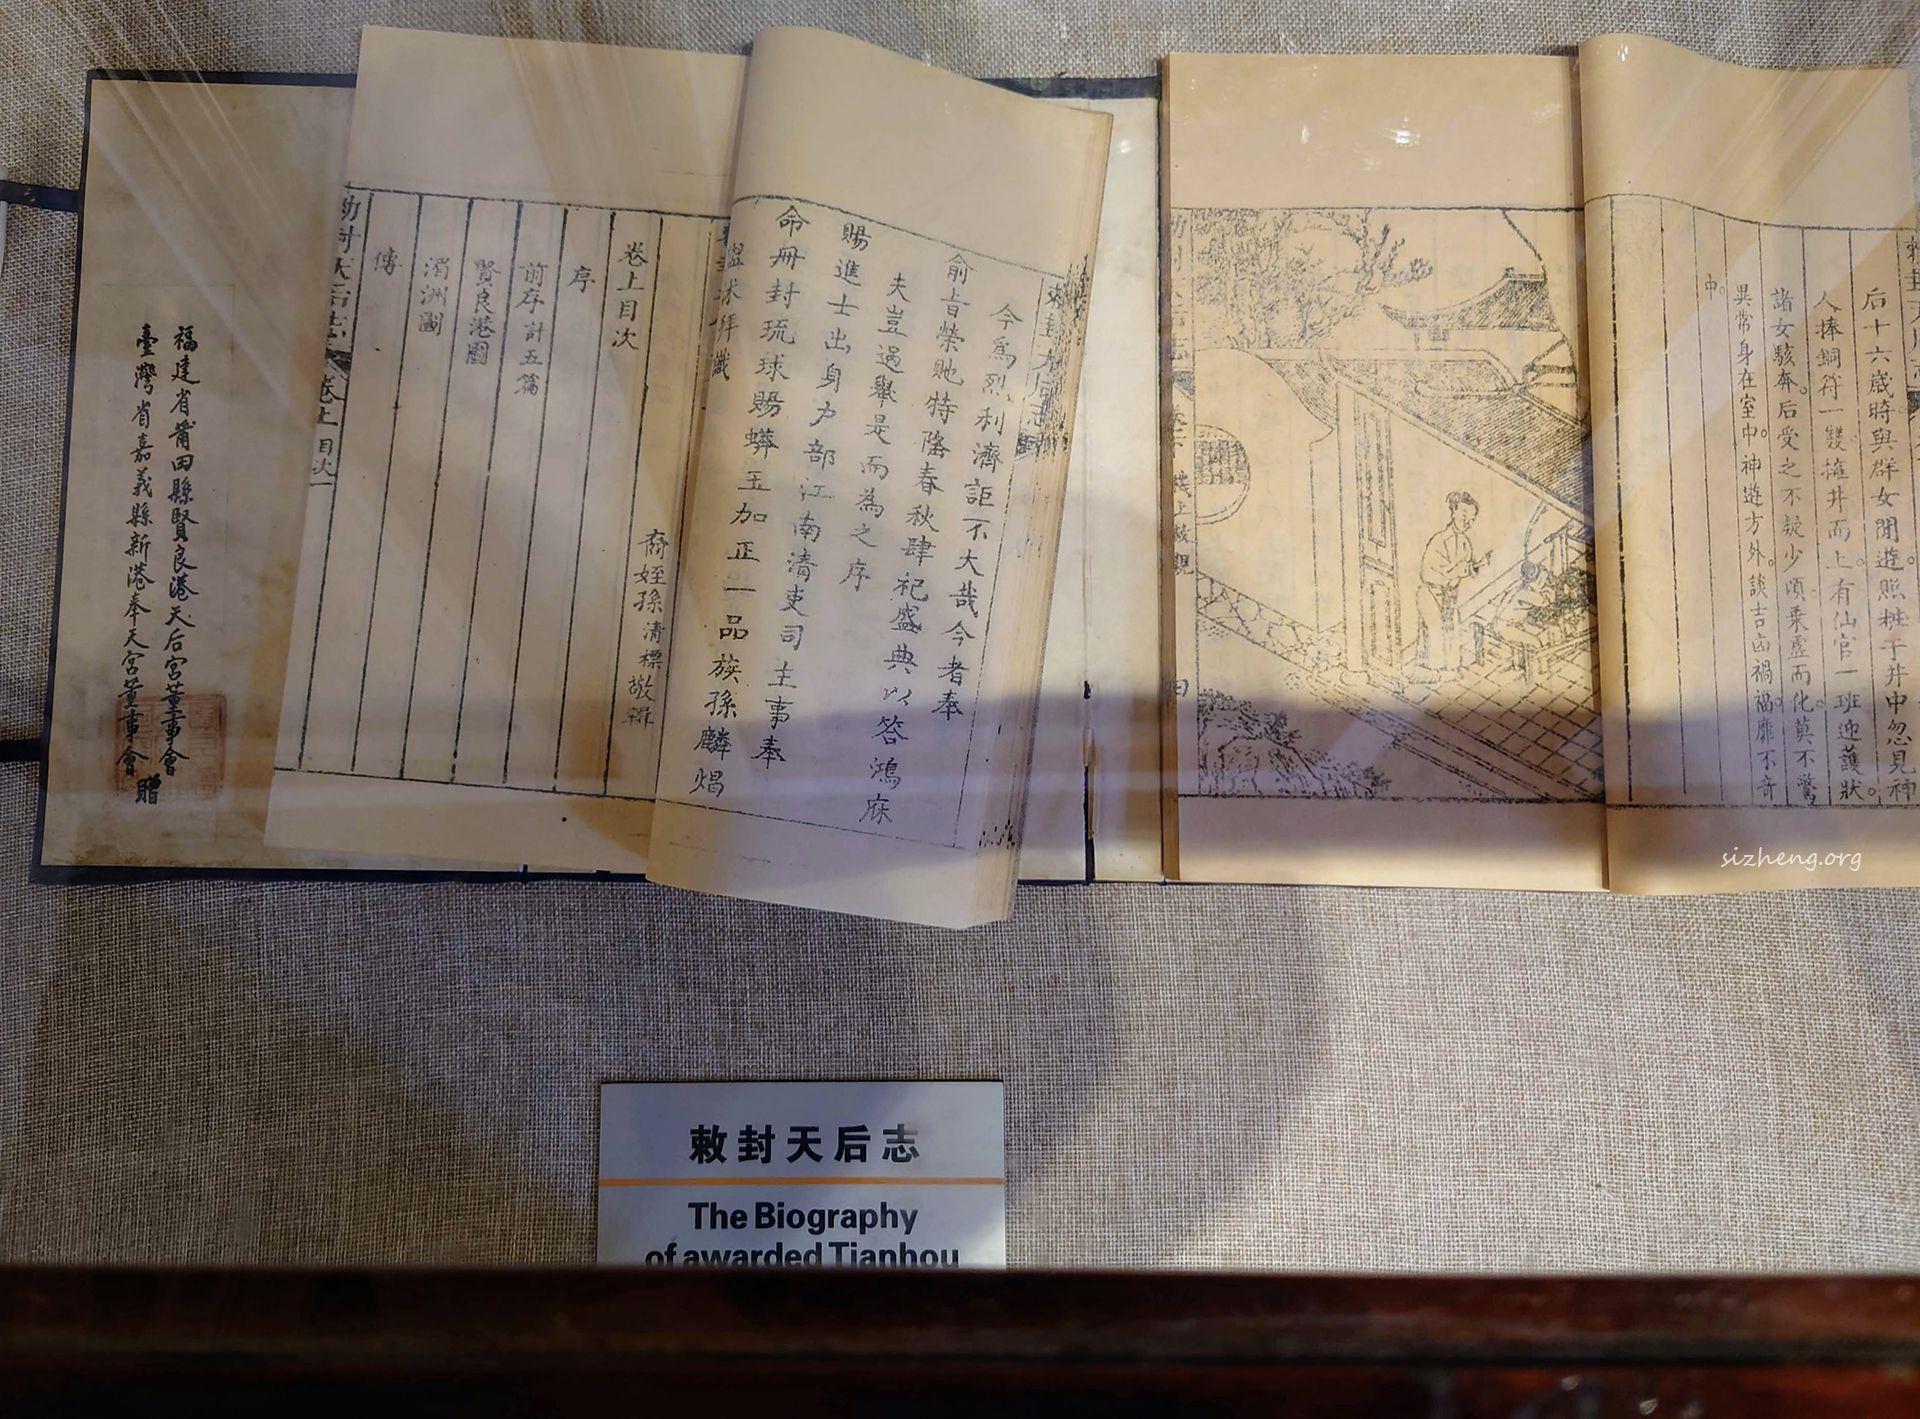 后十六歲時與群女閒遊。照粧于井中忽見神
人捧銅符一雙擁井而上。有仙官一班迎護狀。
諸女駭奔。后受之不疑少頃乘虛而化。莫不驚
異常身在室中。神遊方外。談吉凶禍福靡不奇
中。
今為烈利濟詎不大哉今者奉
俞旨榮貤特隆春秋肆祀盛典以答鴻庥
夫豈過舉是而為之序
賜進士出身戶部江南清吏司主事奉
命冊封琉球賜蟒玉加正一品族孫麟焻
卷上目次
裔姪孫清標敬輯
序
前序計五篇
賢良港圖
湄洲圖
傳
勅封天后志 卷上 目次 一
福建省莆田縣賢良港天后宮董事會
臺灣省嘉義縣新港奉天宮董事會 贈
敕封天后志
The Biography
of awarded Tianhou
sizheng.org